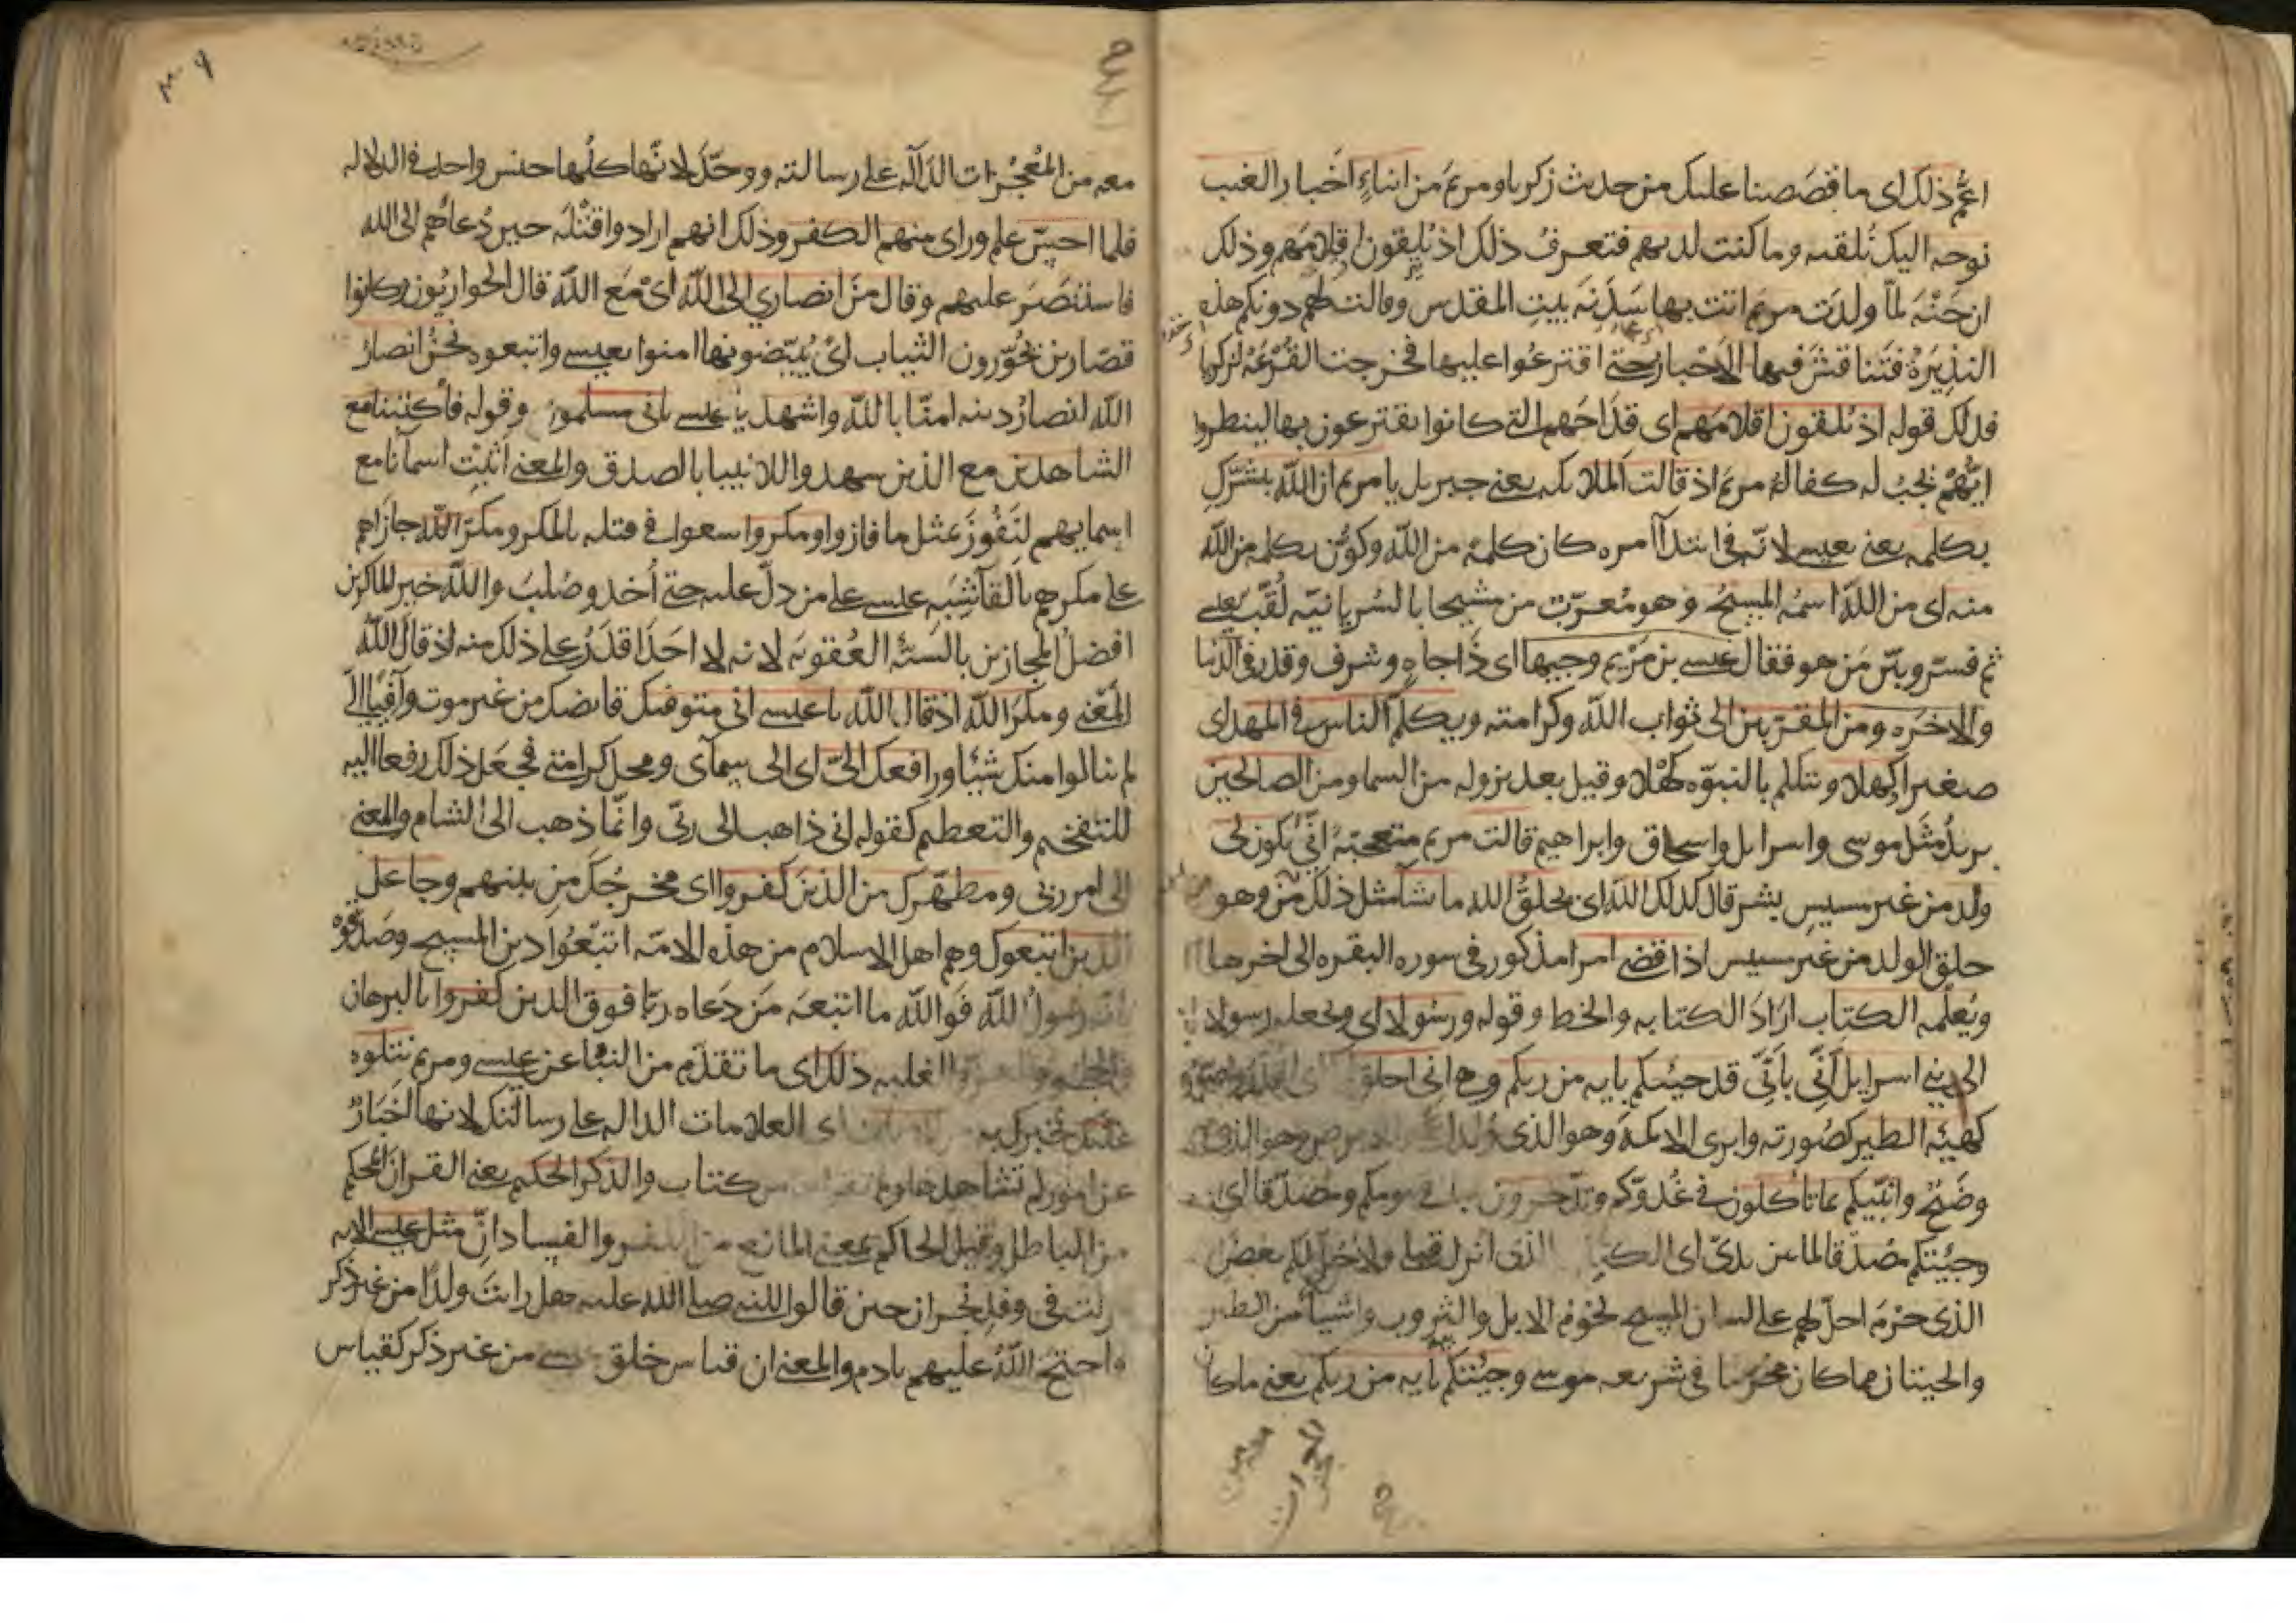 اعمّ ذلك اى ما قصَصنا عليك من حديث زكريا ومريمَ من انباءِ اَخبار الغيب
نوحيه اليك نُلقيه وما كنت لديهم فتعرفُ ذلك اذ يُلقون اقلامَهم وذلك
ان حَنّهَ لمّا ولدَت مريم اتت بها سَدَنهَ بيتِ المقدس وقالت لهم دونكم هذه
النذِيرَةُ فتَنافَسَ فيها الاَحْبار حتى اقترعُوا عليها فخرجت القُرْعَهُ لزكريا
فذلك قوله اذ يُلقون اقلامَهم اى قداحَهم التى كانوا يقترعون بها لينظروا
ايُّهُمْ تجبُ له كفالهُ مريمَ اذ قالت الملايكه يعنى جبريل يا مريم ان الله يبشّركِ
بكلمه يعنى بعيسى لانّه فى ابتدآ امره كان كلمهً من الله وكُوِّن بكلمه من الله
منه اى من الله اسمُه المسيحُ وهو مُعرّب من مشيحا بالسُريانيّه لُقّب بعيسى
ثم فسّر وبيّن مَن هو فقال عيسى بن مَرْيم وجيها اى ذَا جاهٍ وشرف وقدر فى الدّنيا
والاخرَه ومن المقرّبين الى ثواب الله وكرامته ويكلّم الناس فى المهد اى
صغيرا وكهلا ويتكلم بالنبوّه كَهْلا وقيل بعد نزوله من السما ومن الصالحين
يريدُ مثَل موسى واسرايل واسحاق وابراهيم قالت مريم متعجبّهً انّى يكون لى
ولد من غير مسيسِ بشر قال كذلك الله اى يخلقُ الله ما يشآ مثل ذلك من وهو
خلق الولد من غير مسيس اذا قضى امرا مذكور فى سوره البقره الى اخرها
ويُعلّمه الكتاب ارَادَ الكتابه والخط وقوله ورسُولا اى ونجعله رسولا
الى بنى اسرايل اَنّى باَنّى قد جيتكم بايه من ربكم وهى انى اخلق
كهيئه الطير كصُورته وابرى الاكمهَ وهو الذى وُلد وهو الذى
وضَحٌ وانبّيكم بما تاكلون فى غُدوّكم وتدّخرون يومكم ومُصدّقا اى
وجيُتكم مصُدّقا لما بين يدىّ اى الكتاب الذى انزل قبلى ولاُحِلّ لكم بعضَ
الذى حرّمَ احلّ لهم على لسان المسيح لحُومُ الابل والثروب واشيآ من الطير
والحيتان مما كان محُرّما فى شريعه موسى وجيُتكم بايه من ربكم يعنى ما كان
معه من المُعجْزات الدَآله على رسالته ووحّدَ لانّها كلّها جنس واحد فى الدلاله
فلما احسّ علم وراى منهم الكفر وذلك انهم ارادوا قتْلَه حين دُعاهُم الى الله
فاستنصَرَ عليهم وقال مَن انصاري الى الله اىْ مَع الله قال الحواريُون وكانوا
قصّارين يُحُوّرون الثياب اىْ يُبيّضونها امنوا بعيسى واتبعوه نحنُ انصارُ
الله انصارُ دينه امنّا بالله واشهد يا عيسى بانى مسلمون وقوله فاكتبنا مع
الشاهدين مع الذين شهدوا للانبيا بالصدق والمعنى اثبِت اسمآنا مع
اسمايهم لنَفُوزَ بمثل ما فازوا ومكروا سعوا فى قتله بالمكر ومكرَ الله جازاهم
على مكرهم بالقآ شِبَهِ عيسى على من دلّ عليه حتى اُخذ وصُلبَ والله خير الماكرين
افضلُ المجازين بالسّيّهِ العُقوبَه لانه لا احَدَ اقدَرُ على ذلك منه اذ قال الله
المَعْنى ومكَرَ الله اذ قال الله يا عيسى انى متوفيك قابضك من غير موت وافيًا اى
لم ينالوا منك شيئا ورافعك الىّ اى الى سمآى ومحل كرامتى فجعَل ذلك رفعا اليه
للتفخيم والتعظيم كقوله انى ذاهب الى ربّى وانمّا ذهب الى الشام والمعنى
الى امر ربى ومطهّرك من الذين كفروا اى مخرجُكَ من بينهم وجاعل
الذين اتبعوك وهم اهل الاسلام من هذه الامّه اتبّعُوا دين المسيح وصَدّقوهُ
بانّه رسولُ الله فَوالله ما اتبعَه مَن دَعاه ربّا فوق الذين كفروا بالبرهان
والغلبه ذلك اى ما تقدّم من النبَا عن عيسى ومريم نتلوه
عليك نُخبرك به اى العلامات الداله على رسالتك لانها اَخبَارٌ
عن امور لم تشاهدها ولم كتاب والذكر الحكيم يعنى القران المُحكم
من الباطل وقيل الحاكم بمعنى المانع من الكفر والفساد انّ مثل عيسى الايه
نزلت فى وفدِ نجْران حين قالوا للنبى صلى الله عليه هل رايتَ ولدًا من غير ذكر
واحتجّ اللهُ عليهم بادم والمعنى ان قياس خلق عيسى من غير ذكر كقياس